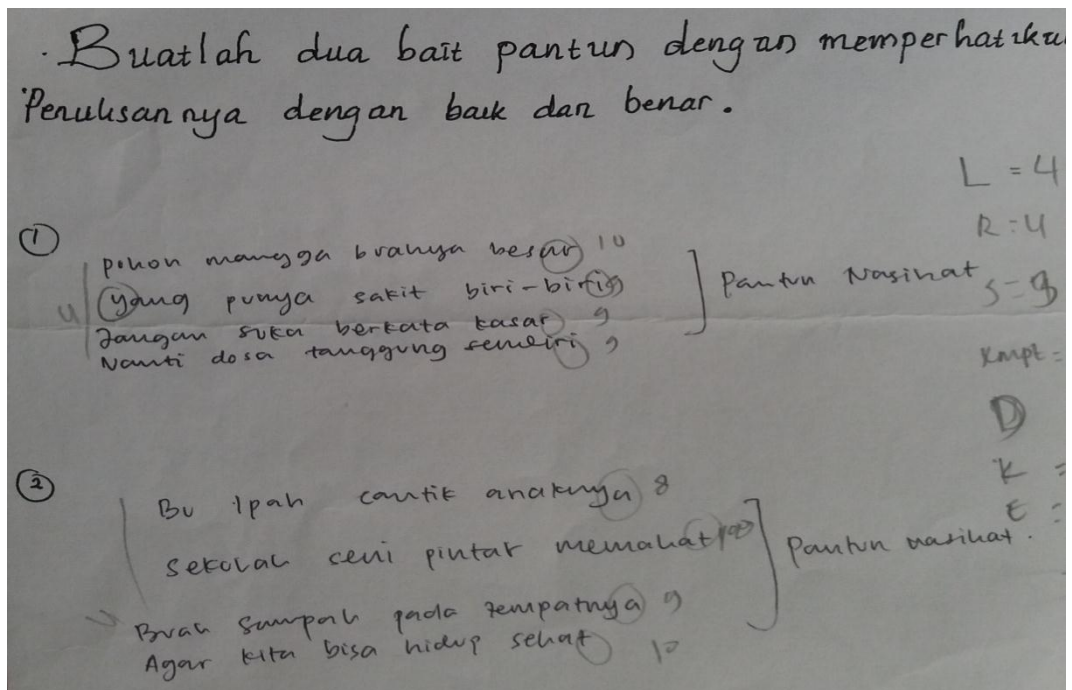 . Buatlah dua bait pantun dengan memperhatika
Penulisannya dengan baik dan benar.
L = 4
R = 4
① pohon mangga buahnya besar 10
yang punya sakit biri-biri 9
Jangan suka berkata kasar 9
Nanti dosa tanggung sendiri 9
4
Pantun Nasihat
S = 9
Kmpt =
D
K =
E =
② Bu Ipah cantik anaknya 8
sekolah seni pintar memahat 10
Buah sampah pada tempatnya 9
Agar kita bisa hidup sehat 10
Pantun nasihat.